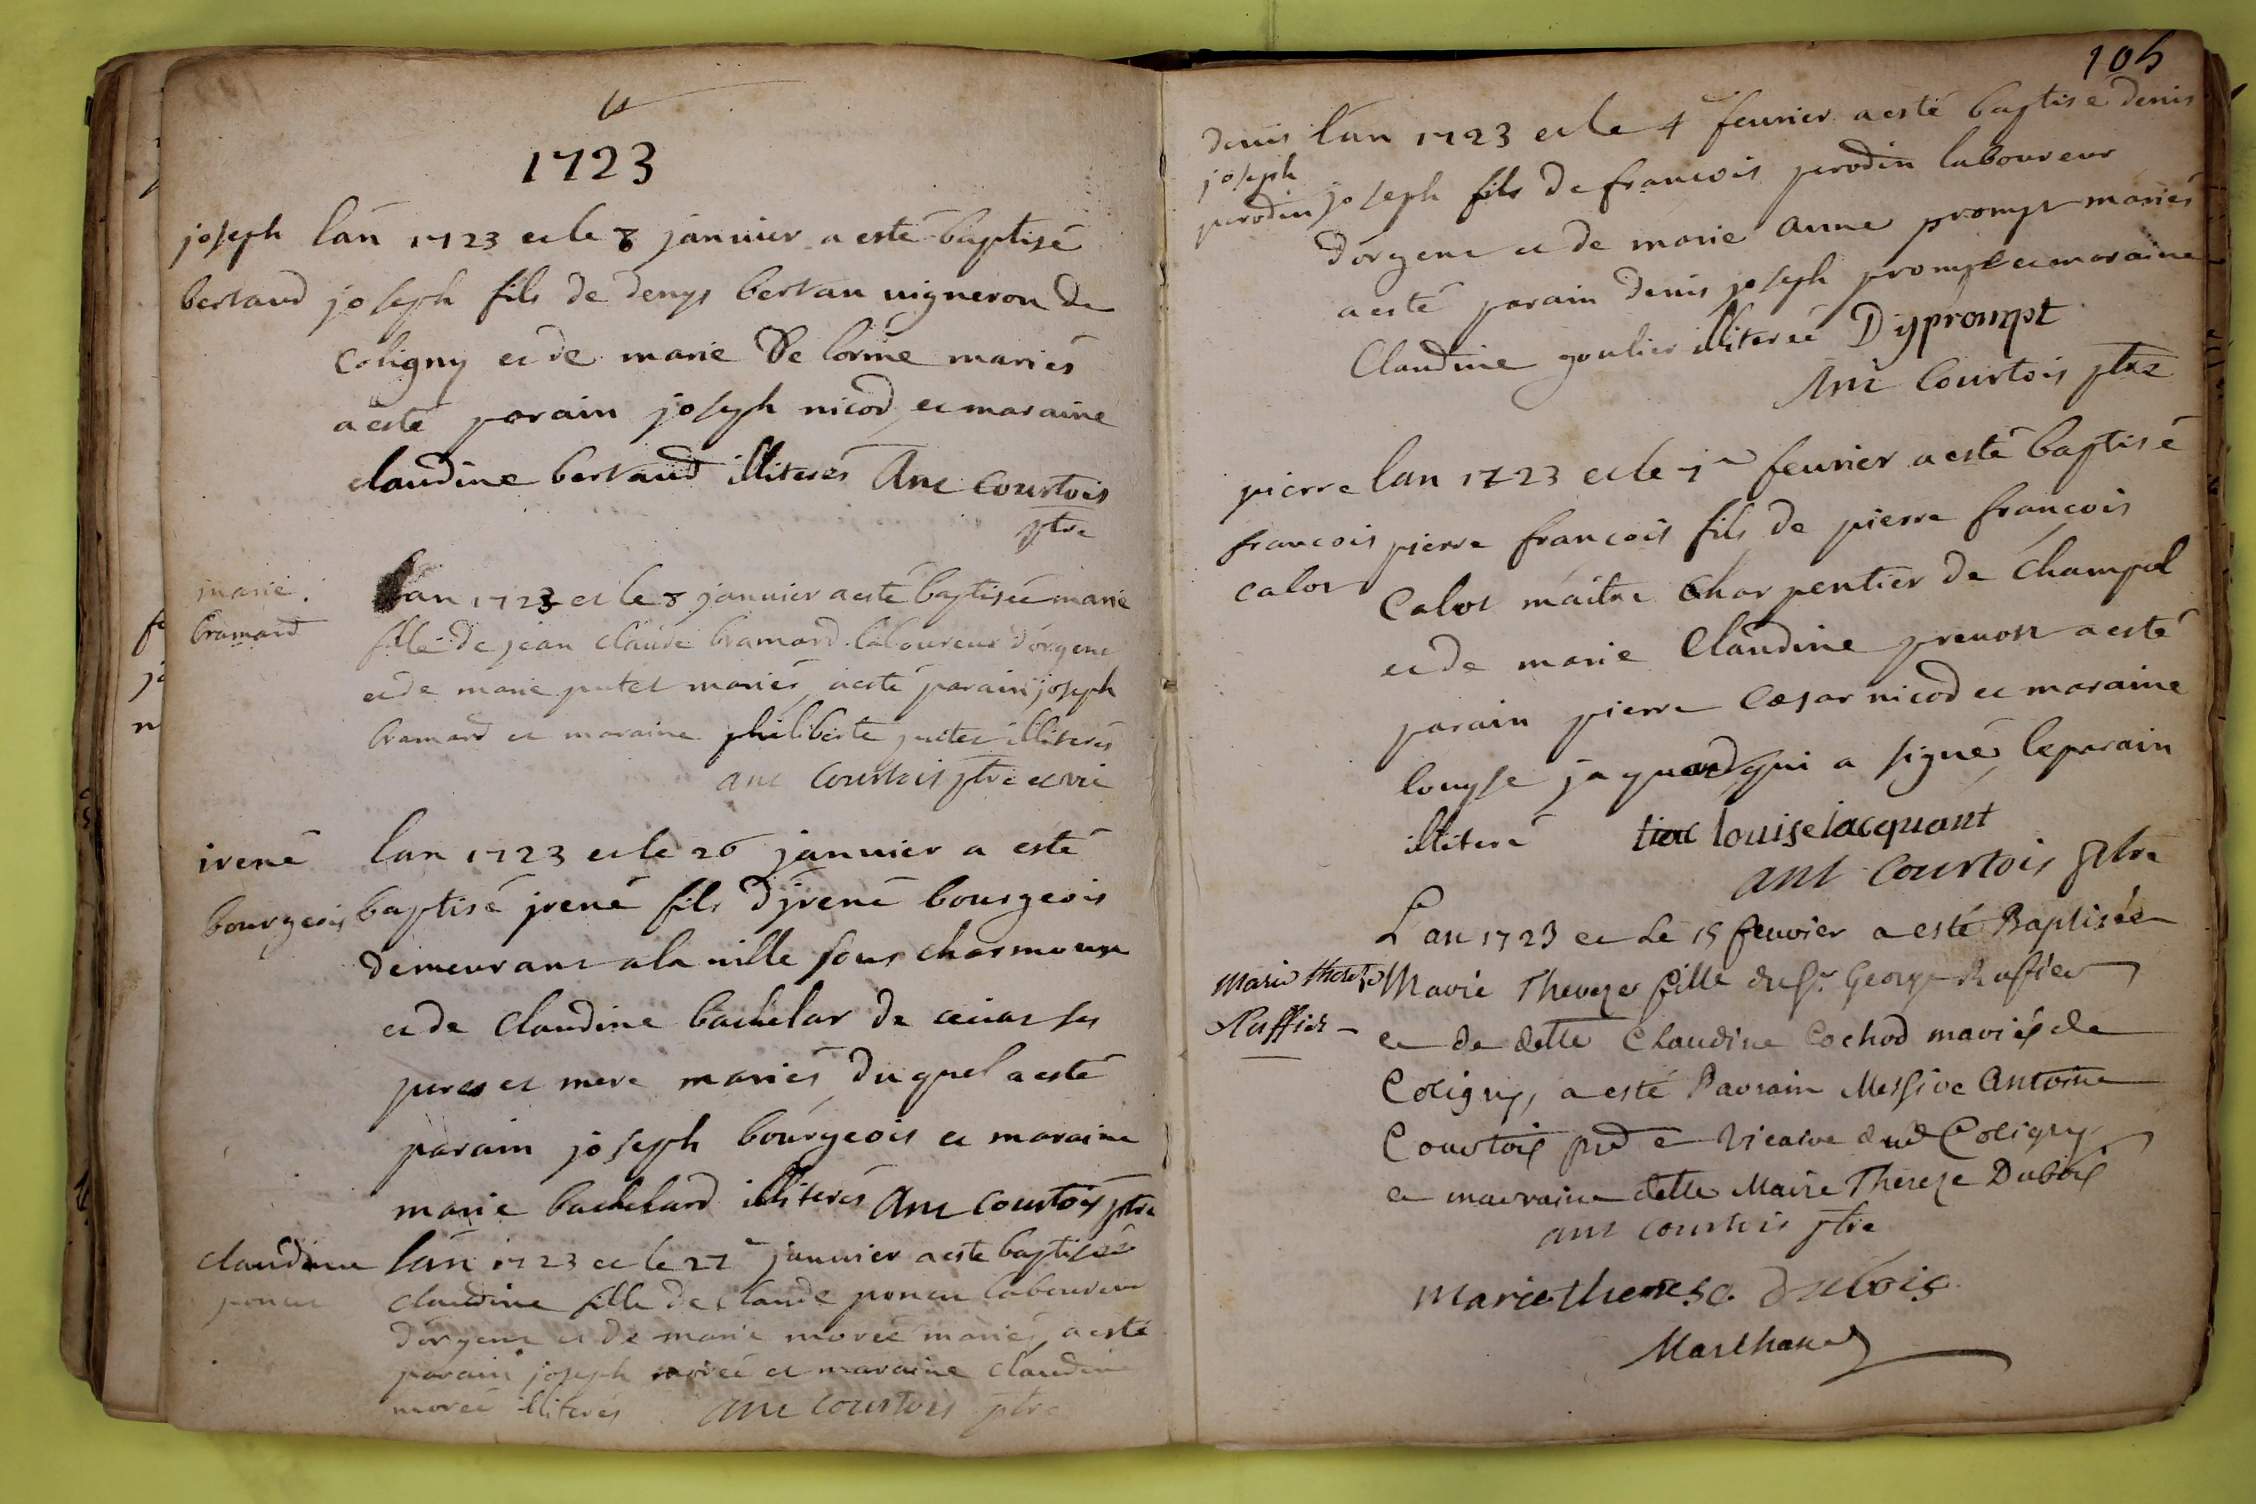 1723
joseph
bertaud
lan 1723 et le 8 janvier a esté baptisé
joseph fils de denys bertau vigneron de
coligny et de marie De lorme mariés
a esté parain joseph nicod et maraine
claudine bertaud illiterés Ant courtois
ptre
marie
bramard
lan 1723 et le 8 janvier a esté baptisée marie
fille de jean claude bramard laboureur dorgent
et de marie putet mariés a esté parain joseph
bramard et maraine philiberte putet illiterés
ant courtois ptre et vic
irené
bourgeois
lan 1723 et le 26 janvier a esté
baptisé jrené fils d'jrené bourgeois
demeurant a la ville sous charmoux
et de claudine bachelar de ses
peres et mere mariés duquel a esté
parain joseph bourgeois et maraine
marie bachelard illiterés Ant courtois ptre
claudine
poncet
lan 1723 et le 27e janvier a esté baptisée
claudine fille de claude poncet laboureur
dorgent et de marie moreé mariés a esté
parain joseph moreé et maraine claudine
moreé illiterés ant courtois ptre
105
denis
joseph
perodin
lan 1723 et le 4 feuvrier a esté baptisé denis
joseph fils de francois perodin laboureur
dorgent et de marie anne prompt mariés
a esté parain denis joseph prompt et maraine
Claudine goulier illiterée D j prompt
Ant Courtois ptre
pierre
francois
calot
lan 1723 et le 7e feuvrier a esté baptisé
pierre françois fils de pierre françois
Calot maitre charpentier de champel
et de marie Claudine prevost a esté
parain pierre Cæsar nicod et maraine
louyse jaquand qui a signé, le parain
illiteré louise iacquant
ant Courtois Ptre
Marie therese
Ruffier
L'an 1723 et Le 15 feuvier a esté Baptisée
Marie Thereze fille du sr George Ruffier
et de delle Claudine Cochod mariés de
Coligny, a esté Parrain Messire Antoine
Courtois prd e Vicaire dud Coligny
et marraine delle Marie Thereze Dubois
ant courtois ptre
marie therese dubois
Marchand